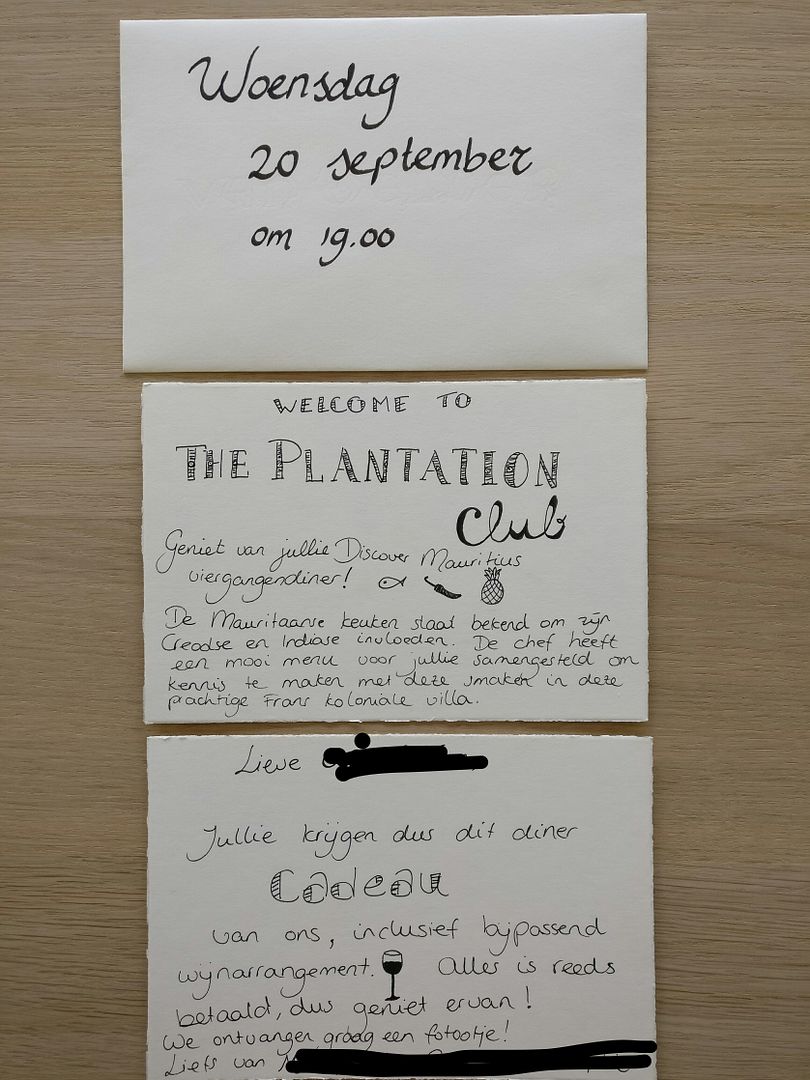 Woensdag
20 september
om 19.00
WELCOME TO
THE PLANTATION
Club
Geniet van jullie Discover Mauritius
viergangendiner!
De Mauritiaanse keuken staat bekend om zijn
Creoolse en Indiase invloeden. De chef heeft
een mooi menu voor jullie samengesteld om
kennis te maken met deze smaken in deze
prachtige Frans koloniale villa.
Lieve
Jullie krijgen dus dit diner
Cadeau
van ons, inclusief bijpassend
wijnarrangement. Alles is reeds
betaald, dus geniet ervan!
We ontvangen graag een fotootje!
Liefs van